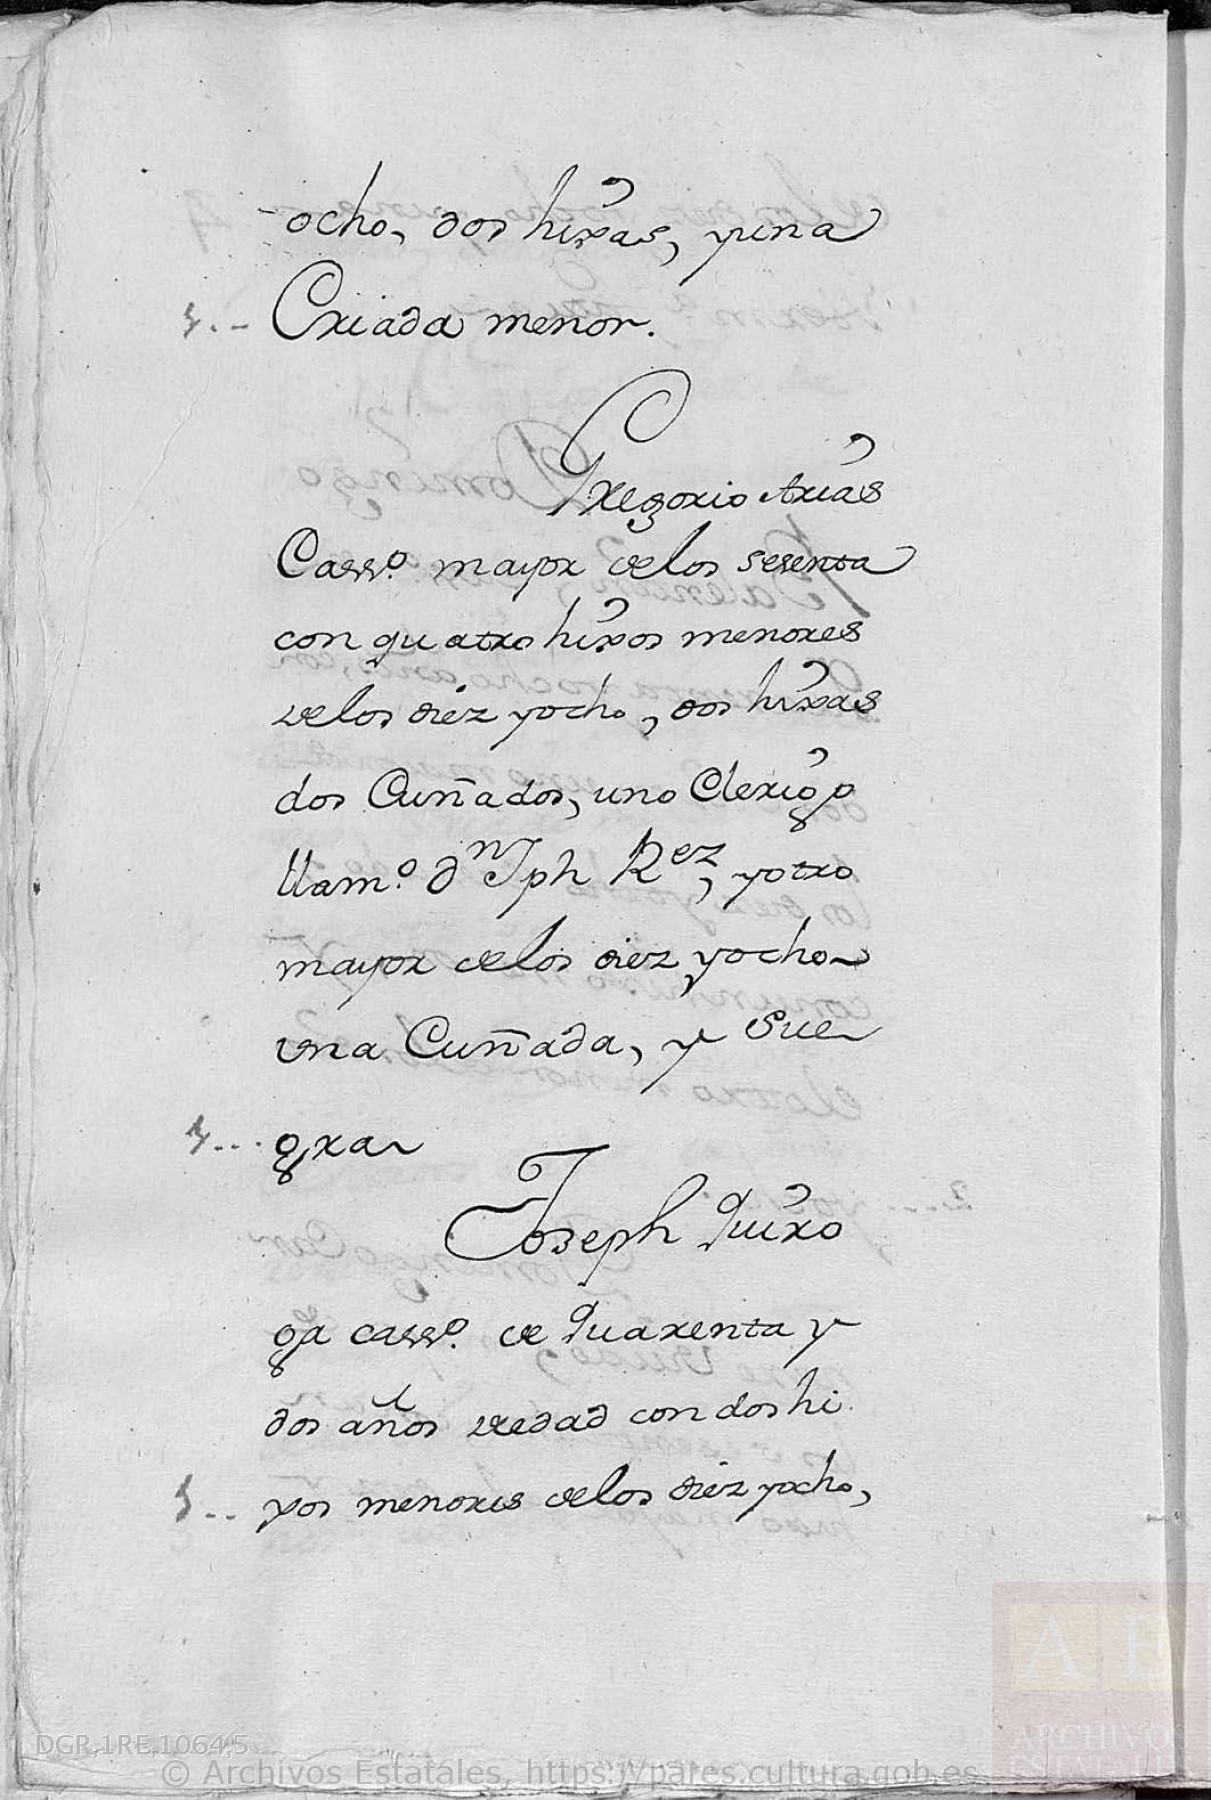 ocho, dos hixas, y una
Criada menor.
Gregorio Arias
Cass.º mayor de los sesenta
con quatro hixos menores
de los diez y ocho, dos hixas
dos Cuñados, uno Clerigo
llam.º dn Jph Rez, y otro
mayor de los diez y ocho
una Cuñada, y Sue
gra
Joseph Quiro
ga cass.º de Quarenta y
dos años de edad con dos hi
xos menores de los diez y ocho,
DGR,1RE,1064,5
© Archivos Estatales, https://pares.cultura.gob.es
AE
ARCHIVOS
ESTATALES